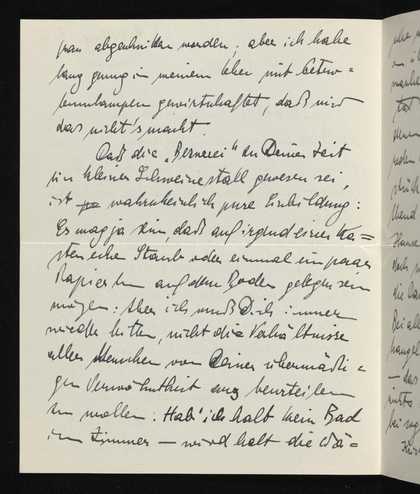 man abgeschnitten worden; aber ich habe
lang genug in meinem Leben mit Petro-
leumlampen gewirtschaftet, daß mir
das nicht's macht.
Daß die „Bernerei" zu Deiner Zeit
ein kleiner Schweinestall gewesen sei,
ist wahrscheinlich pure Einbildung:
Es mag ja sein daß auf irgend einem Ka-
sten eine Staub oder einmal ein paar
Papierln auf dem Boden gelegen sein
mögen: Aber ich muß Dich immer
wieder bitten, nicht die Verhältnisse
aller Menschen von Deiner übermäßi-
gen Verwöhntheit aus beurteilen
zu wollen: Hab' ich halt kein Bad
im Zimmer — wird halt die Wä-